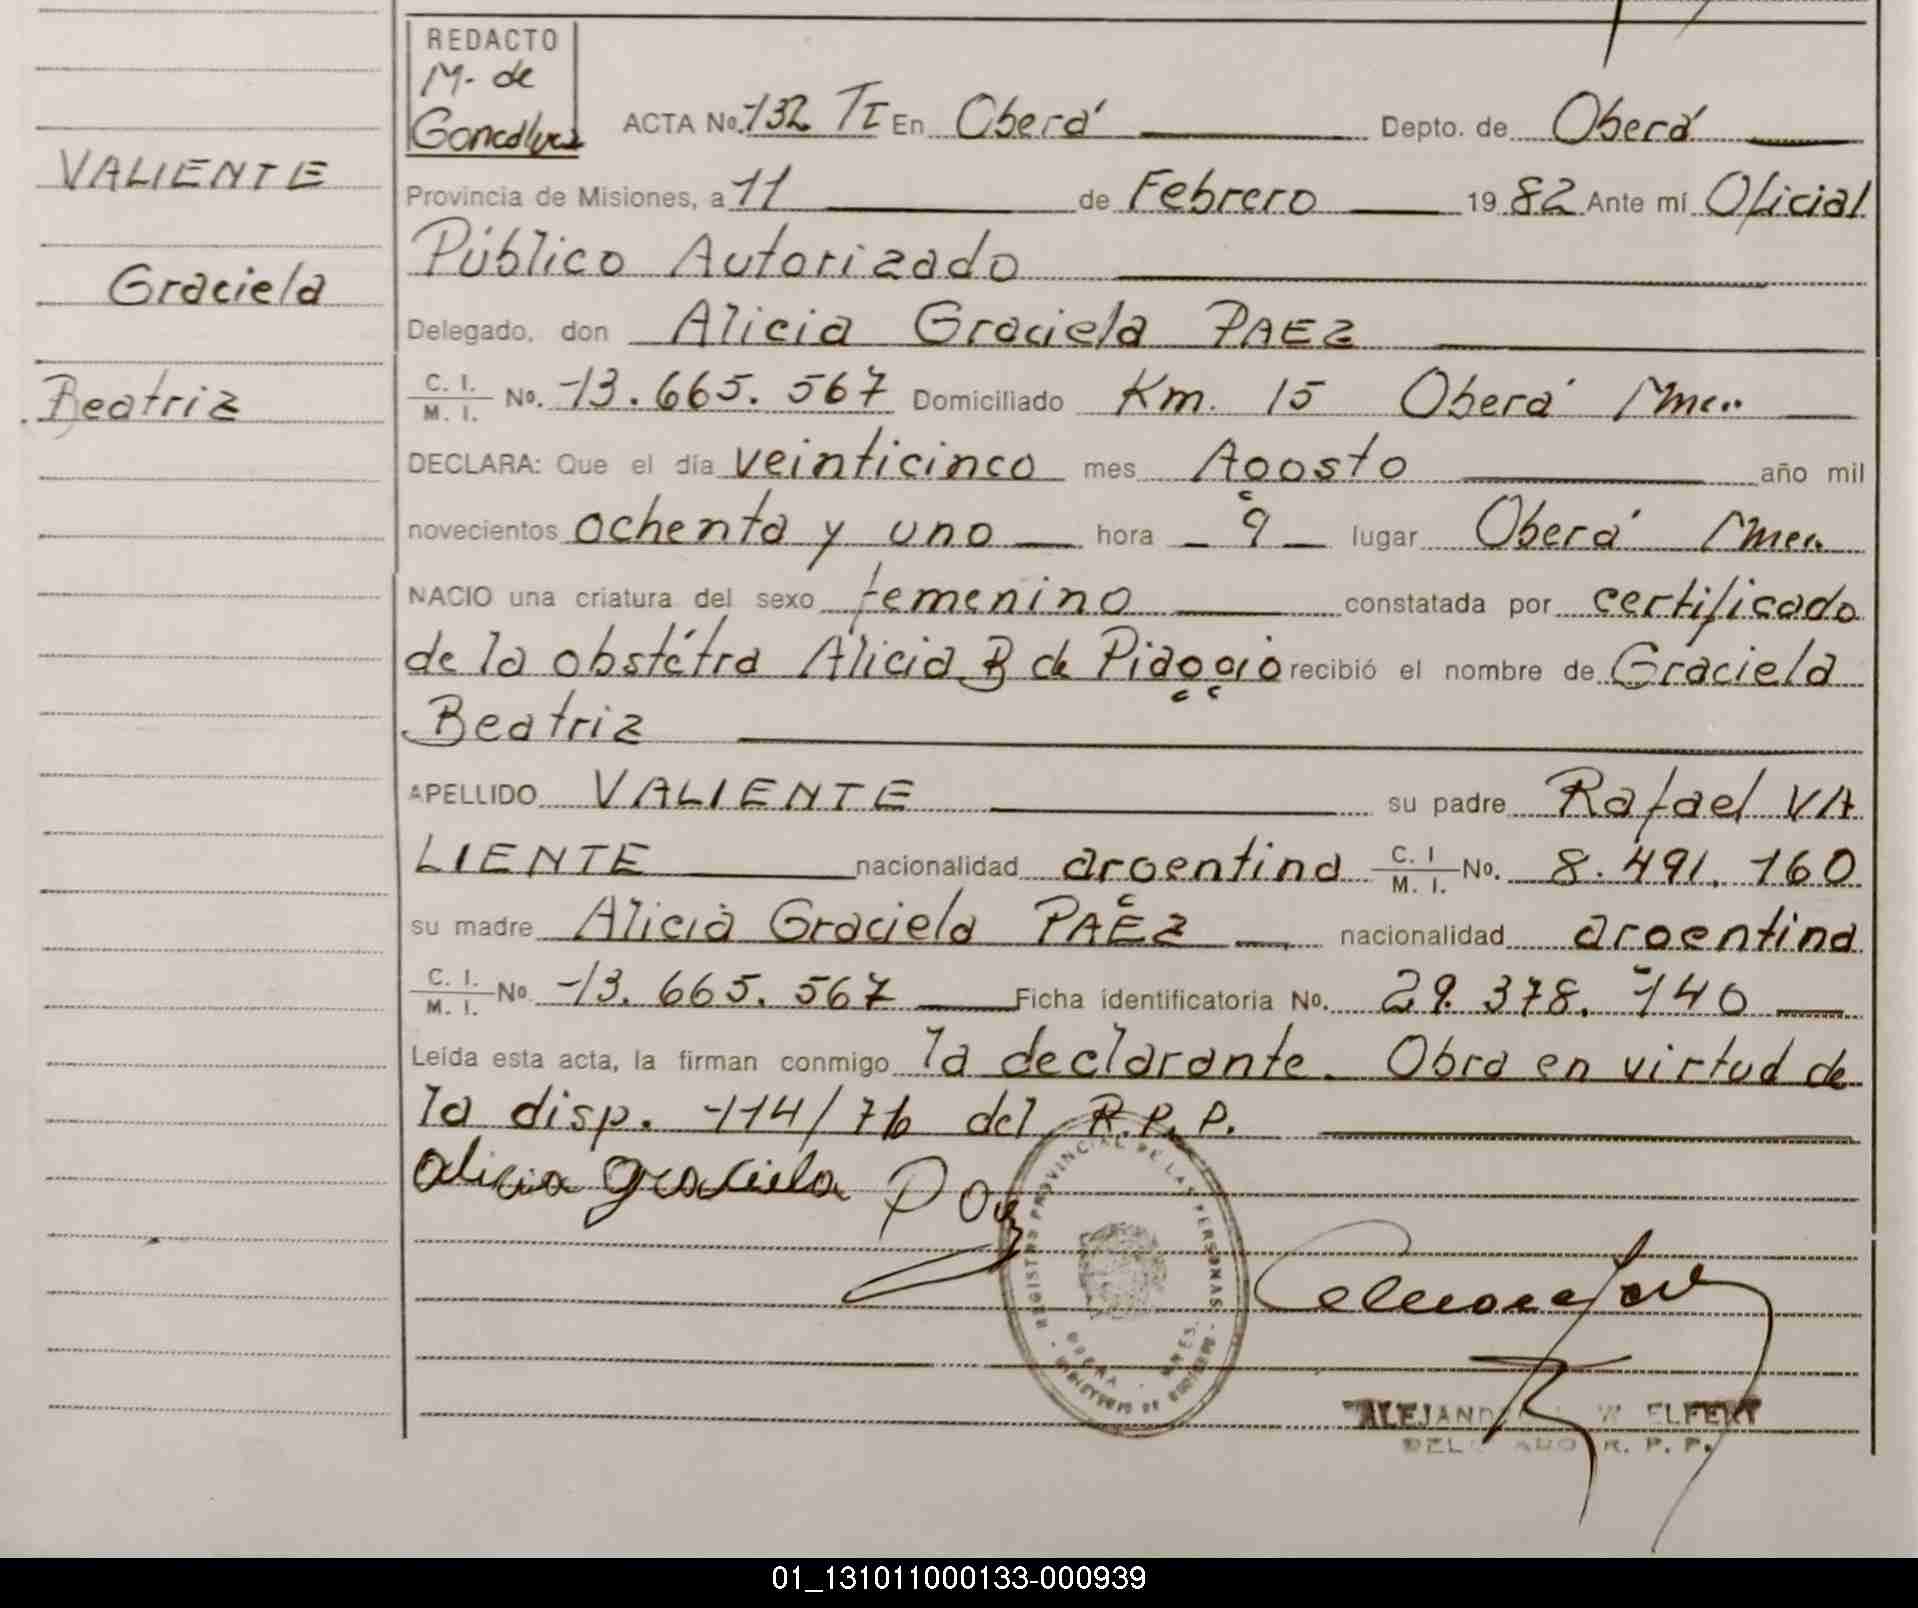 REDACTO
M. de
Goncalvez
ACTA No. 132 TI En Oberá Depto. de Oberá
VALIENTE
Provincia de Misiones, a 11 de Febrero 1982 Ante mí Oficial
Público Autorizado
Graciela
Delegado, don Alicia Graciela PAEZ
Beatriz
C. I. M. I. No. 13.665.567 Domiciliado Km. 15 Oberá Mnes.
DECLARA: Que el día veinticinco mes Agosto año mil
novecientos ochenta y uno hora 9 lugar Oberá Mnes.
NACIO una criatura del sexo femenino constatada por certificado
de la obstétra Alicia B de Piaggio recibió el nombre de Graciela
Beatriz
APELLIDO VALIENTE su padre Rafael VA
LIENTE nacionalidad argentina C. I M. I. No. 8.491.160
su madre Alicia Graciela PAEZ nacionalidad argentina
C. I. M. I. No 13.665.567 Ficha identificatoria No. 29.378.140
Leída esta acta, la firman conmigo la declarante. Obra en virtud de
la disp. 114/76 del R.P.P.
Alicia graciela Paez
REGISTRO PROVINCIAL DE LAS PERSONAS
OBERA - MNES.
ELFERT
R. P. P.
01_131011000133-000939